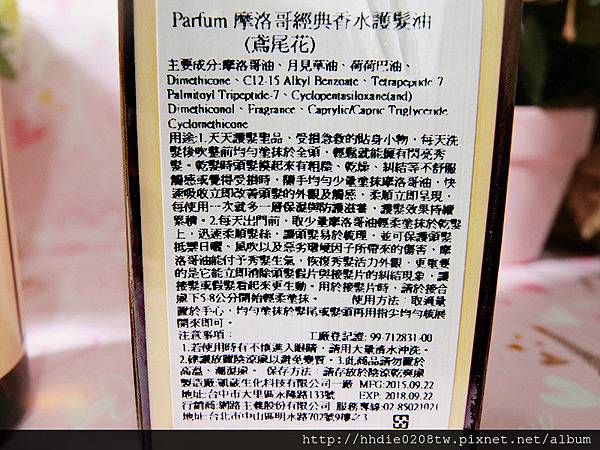 Parfum 摩洛哥經典香水護髮油
(鳶尾花)
主要成分:摩洛哥油、月見草油、荷荷巴油、
Dimethicone、C12-15 Alkyl Benzoate、Tetrapeptide-7
Palmitoyl Tripeptide-7、Cyclopentasiloxane(and)
Dimethiconol、Fragrance、Caprylic/Capric Triglyceride
Cyclomethicone
用途:1.天天護髮聖品，受損急救的貼身小物，每天洗
髮後吹整前均勻塗抹於全頭，輕鬆就能擁有閃亮秀
髮。乾髮時頭髮摸起來有粗糙、乾燥、糾結等不舒服
觸感或覺得受損時，隨手均勻少量塗抹摩洛哥油，快
速吸收立即改善頭髮的外觀及觸感，柔順立即呈現，
每使用一次就多一層保濕與防護滋養，護髮效果持續
累積。2.每天出門前，取少量摩洛哥油輕柔塗抹於乾髮
上，迅速柔順髮絲，讓頭髮易於梳理，並可保護頭髮
抵禦日曬、風吹以及惡劣環境因子所帶來的傷害，摩
洛哥油能付予秀髮生氣，恢復秀髮活力外觀，更重要
的是它能立即消除頭髮假片與接髮片的糾結現象，讓
接髮或假髮看起來更生動。用於接髮片時，請於接合
處下5-8公分開始輕柔塗抹。 使用方法：取適量
置於手心，均勻塗抹於髮尾或髮頭再用指尖均勻梳展
開來即可。
注意事項： 工廠登記證: 99-712831-00
1.若使用時有不慎進入眼睛，請用大量清水沖洗。
2.建議放置陰涼處以避免變質。3.此商品請勿置於
高溫、潮濕處。保存方法：請存放於陰涼乾爽處
製造廠:凱葳生化科技有限公司一廠 MFG:2015.09.22
地址:台中市大里區永隆路133號 EXP: 2018.09.22
行銷商:網路主義股份有限公司 服務專線:02-85021921
地址:台北市中山區明水路702號9樓之3
http://hhdie0208tw.pixnet.net/album